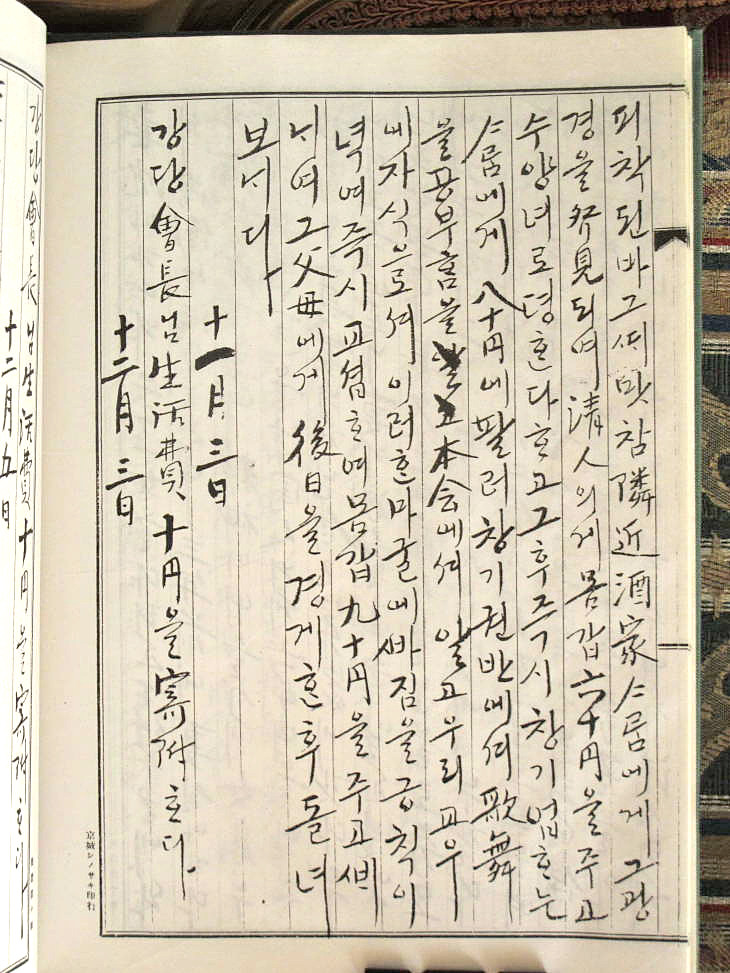 피착된바그ᄯᅢ맛참隣近酒家스놈에게그광
경을發見되여淸人의게몸갑六十円을주고
수양녀로뎡ᄒᆞᆫ다ᄒᆞ고그후즉시창기업ᄒᆞ는
스놈에게八十円에팔려창기권반에셔歌舞
을공부홈을本会에셔알고우리교우
에자식으로셔이러ᄒᆞᆫ마굴에ᄲᅡ짐을금칙이
녁여즉시교셥ᄒᆞ여몸갑九十円을주고ᄲᅢ
너여그父母에게後日을경게ᄒᆞᆫ후돌녀
보너다
十一月三日
강당會長님生活費十円을寄附ᄒᆞ다
十二月三日
강당會長님生活費十円을寄附ᄒᆞ다
十二月五日
京城シノサキ印行